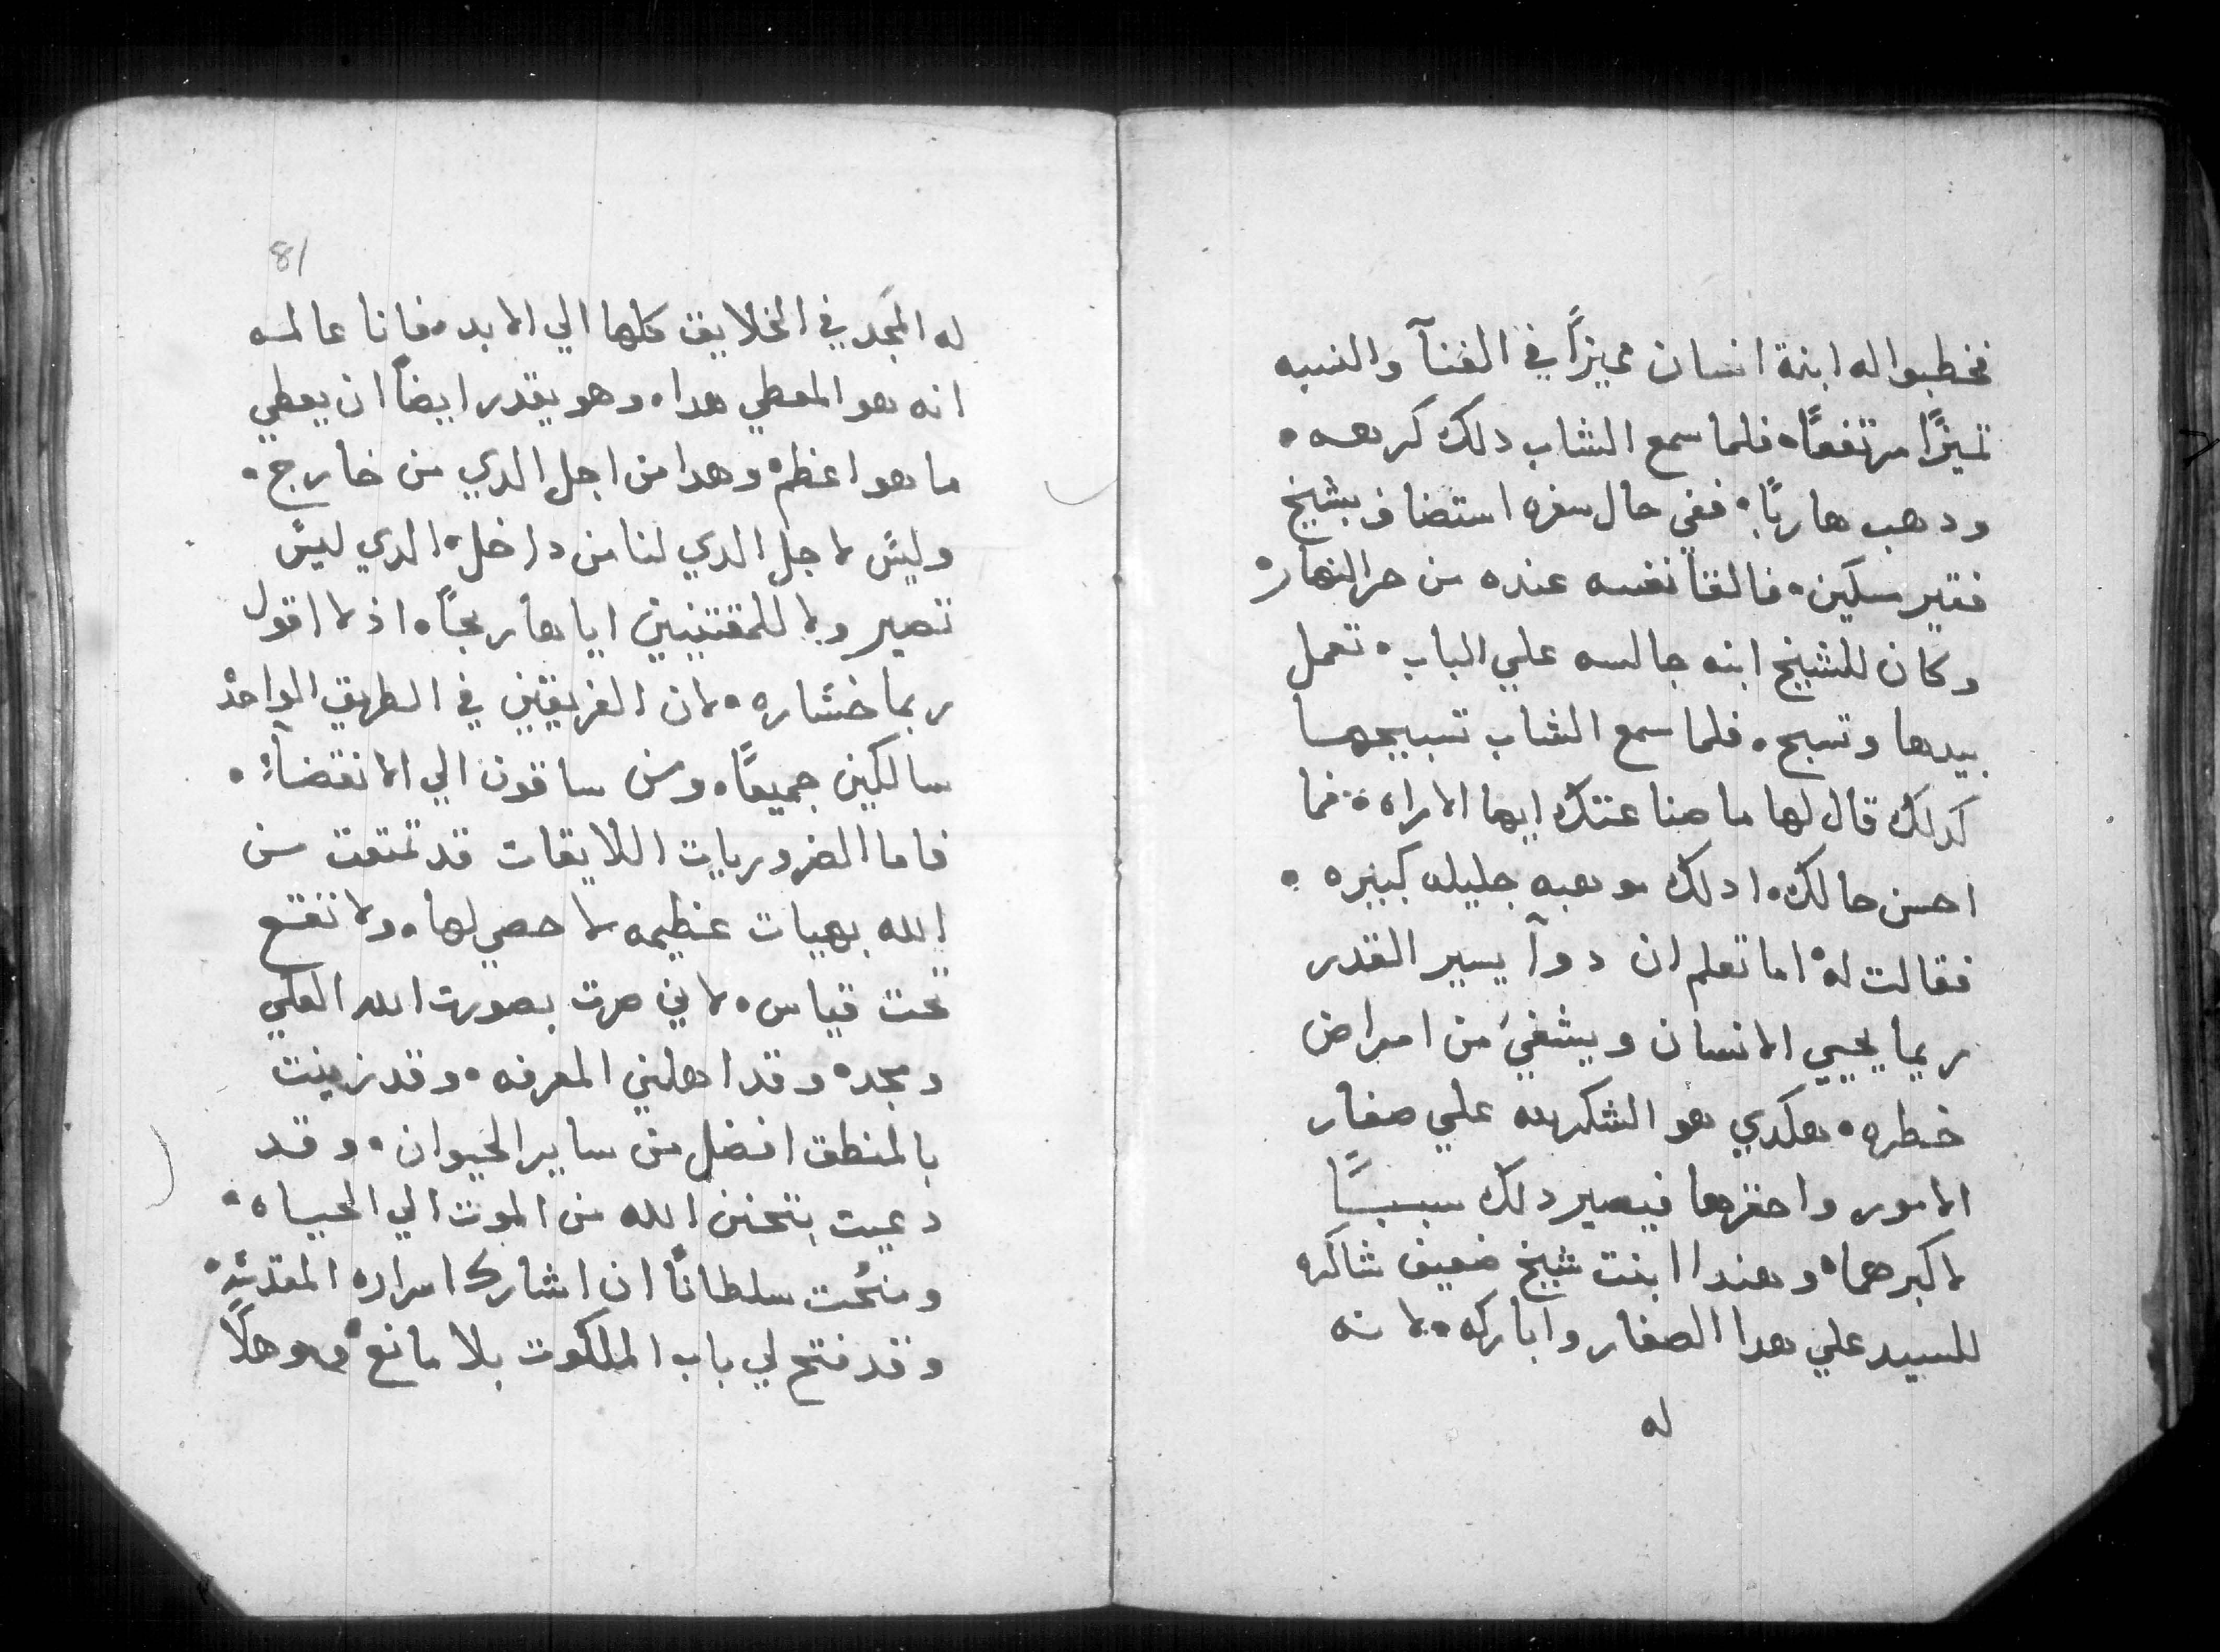 فخطبوا له ابنة انسان مميزًا في الغنآ والنسبه
تميزًا مرتفعًا. فلما سمع الشاب دلك كرهه.
ودهب هاربًا. ففي حال سفره استضاف بشيخ
فقير مسكين. فالقا نفسه عنده من حر النهار.
وكان للشيخ ابنه جالسه علي الباب. تعمل
بيدها وتسبح. فلما سمع الشاب تسبيحها
كدلك قال لها ما صناعتك ايها الامراه. فما
احسن حالك. ادلك موهبه جليله كبيره.
فقالت له. اما تعلم ان دوآ يسير القدر
ربما يحيي الانسان ويشفي من امراض
خطره. هكدي هو الشكر لله علي صغار
الامور واحقرها فيصير دلك سببًا
لاكبرهما. وهندا ابنت شيخ ضعيف شاكره
للسيد علي هدا الصغار واباركه. لانه
له
81
له المجد في الخلايق كلها الي الابد. فانا عالمه
انه هو المعطي هدا. وهو يقدر ايضًا ان يعطي
ما هو اعظم. وهدا من اجل الدي من خارج.
وليس لاجل الدي لنا من داخل. الدي ليس
تصير ولا للمقتنيين اياها ربحًا. اذ لا اقول
ربما خساره. لان الفريقين في الطريق الواحد
سالكين جميعًا. ومن ساقون الي الانقضاء.
فاما الضروريات اللايقات قد تمتعت من
الله بهبات عظيمه لا حصي لها. ولا تقع
تحت قياس. لاني صرت بصورت الله العلي
ومجده. وقد اهلني المعرفه. وقد زينت
بالمنطق افضل من ساير الحيوان. وقد
دعيت بتحنن الله من الموت الي الحياه.
ومنحت سلطانًا ان اشارك اسراره المقدسه.
وقد فتح لي باب الملكوت بلا مانع. وهو هلًا